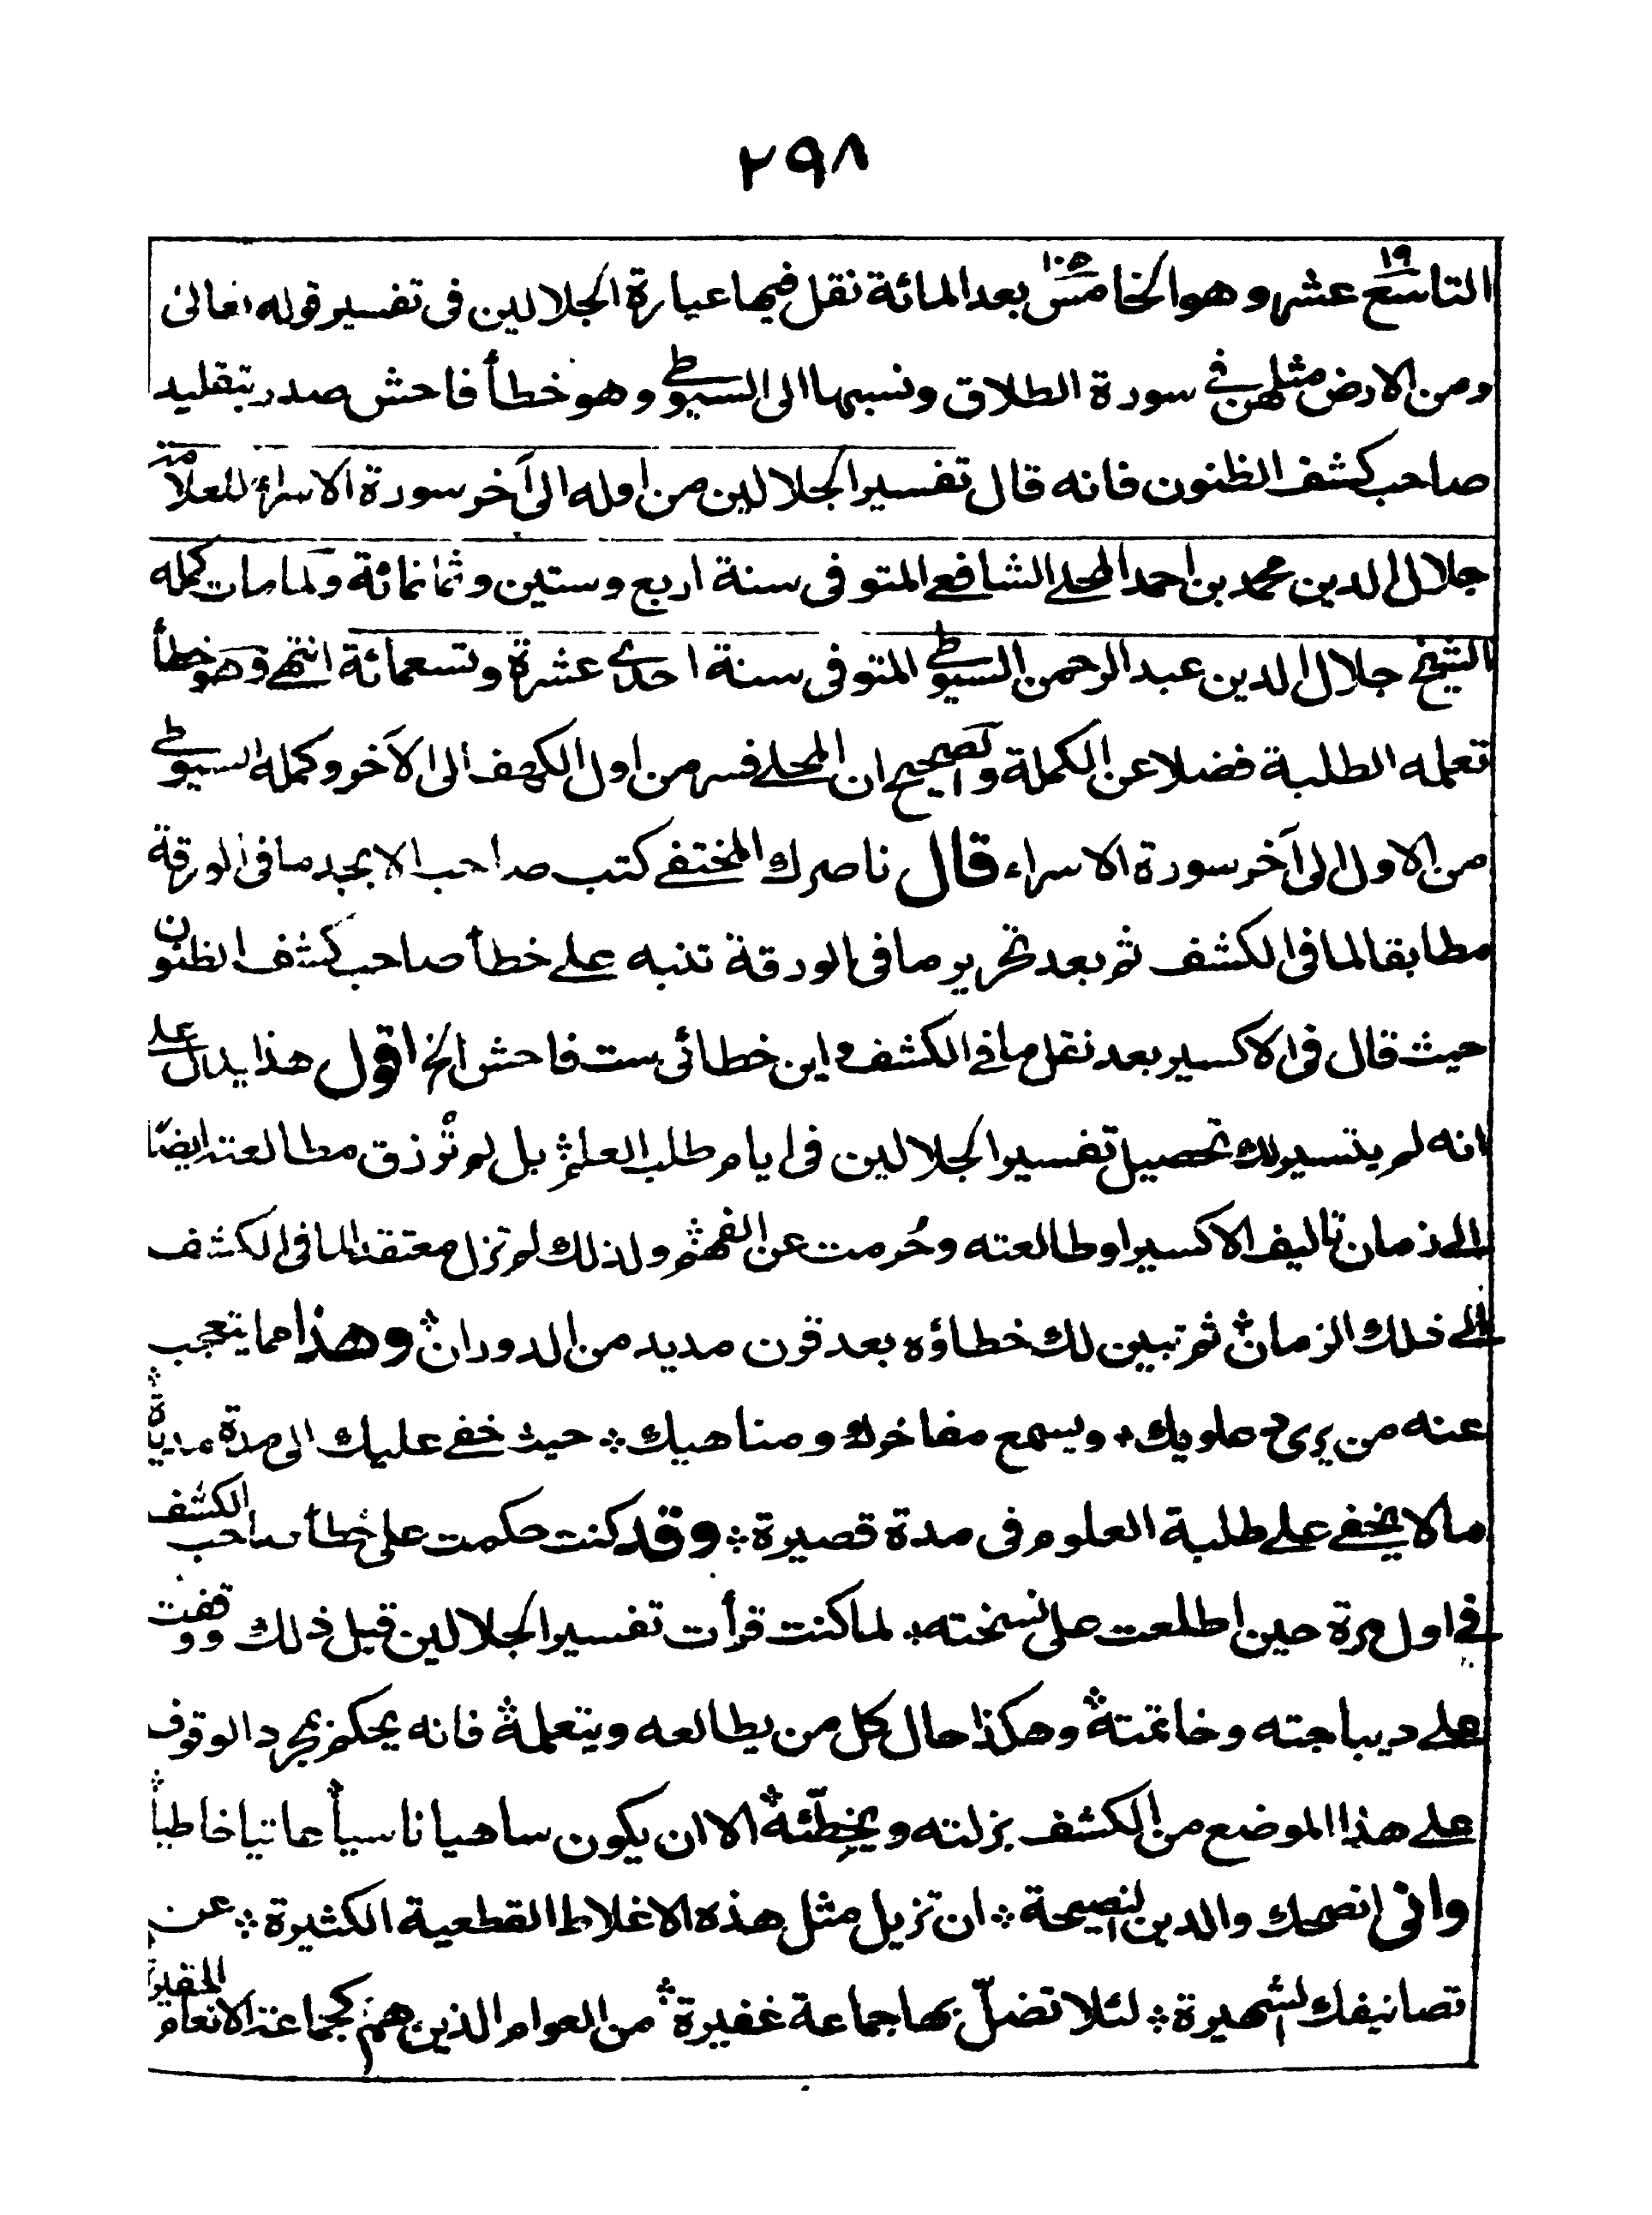 ٢٩٨
التاسع عشر وهو الخامس بعد المائة نقل فيها عبارة الجلالين فى تفسير قوله تعالىٰ
١٩ ١٠٥
ومن الارض مثلهن فى سورة الطلاق ونسبها الى السيوطے وهو خطأ فاحش صدر بتقليد
صاحب كشف الظنون فانه قال تفسير الجلالين من اوله الى آخر سورة الاسراء للعلامة
جلال الدين محمد بن احمد المحلے الشافعے المتوفى سنة اربع وستين وثمانمائة ولما مات كمله
الشيخ جلال الدين عبد الرحمن السيوطے المتوفى سنة احدى عشرة وتسعمائة انتهے وهو خطأ
تعلمه الطلبة فضلا عن الكملة والصحيح ان المحلے فسر من اول الكهف الى الآخر وكمله السيوطے
من الاول الى آخر سورة الاسراء قال ناصرك المختفے كتب صاحب الابجد ما فى الورقة
مطابقا لما فى الكشف ثم بعد تحرير ما فى الورقة تنبه علے خطأ صاحب كشف الظنون
حيث قال فى الاكسير بعد نقل ما فى الكشف و اين خطائى ست فاحش الخ اقول هذا يدل علے
انه لم يتيسر لك تحصيل تفسير الجلالين فى ايام طلب العلم؞ بل لم تُرزق مطالعته ايضًا
الے زمان تاليف الاكسير او طالعته وحُرمت عن الفهم؞ ولذلك لم تزل معتقدا لما فى الكشف
الے ذلك الزمان؞ ثم تبين لك خطاؤه بعد قرن مديد من الدوران؞ وهذا مما يتعجب
عنه من يرى دعاويك؞ ويسمع مفاخرك ومناهيك؞ حيث خفے عليك الى مدة مديدة؞
مالا يخفے علے طلبة العلوم فى مدة قصيرة؞ وقد كنت حكمت على خطأ صاحب الكشف
فى اول مرة حين اطلعت على نسخته؞ لما كنت قرأت تفسير الجلالين قبل ذلك ووقفت
علے ديباجته وخاتمته؞ وهكذا حال كل من يطالعه ويتعلمه؞ فانه يحكم بمجرد الوقوف
علے هذا الموضع من الكشف بزلته ويخطّئه؞ الا ان يكون ساهيا ناسيأ عاتيا خاطيأ؞
وانى انصحك والدين النصيحة؞ ان تزيل مثل هذه الاغلاط القطعية الكثيرة؞ عن
تصانيفك الشهيرة؞ لئلا تضلّ بها جماعة غفيرة؞ من العوام الذين هم كجماعة الانعام الحقيرة